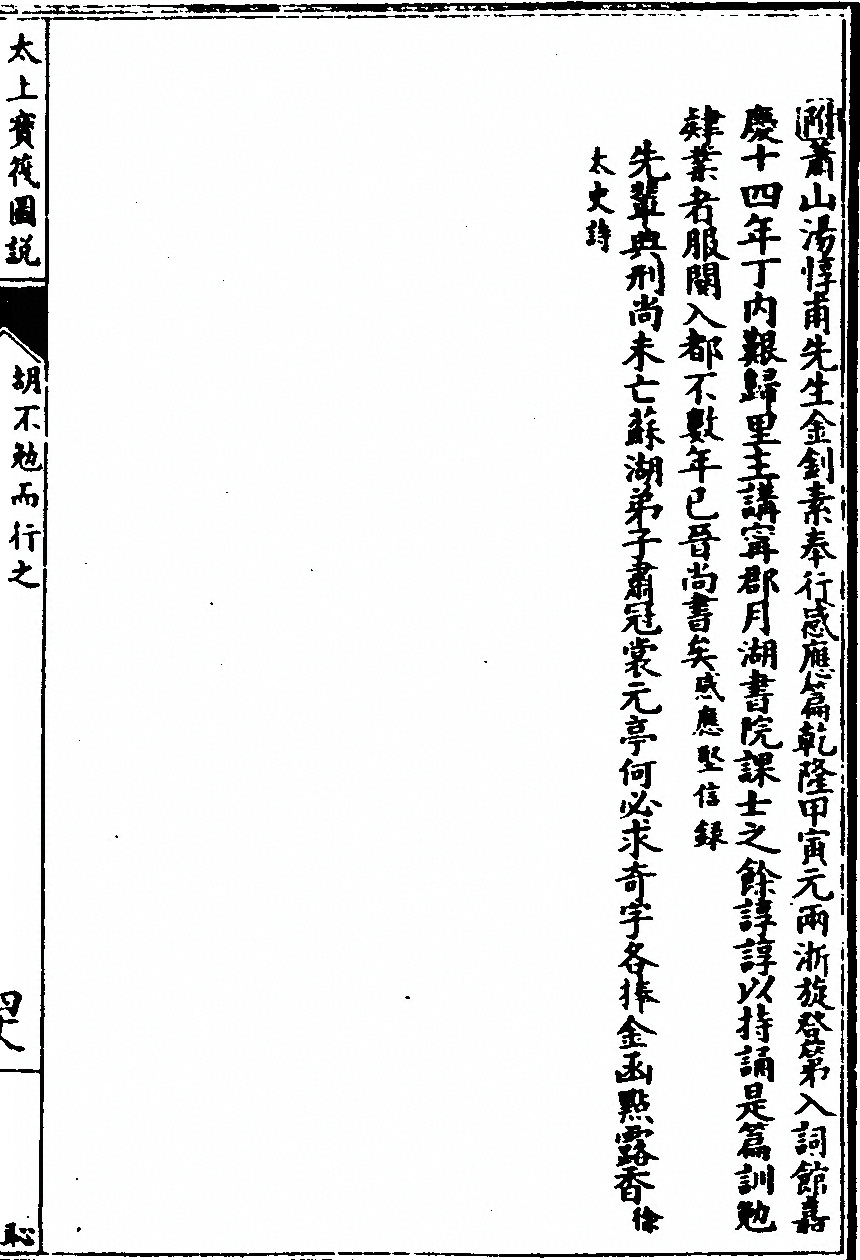 附蕭山湯惇甫先生金釗素奉行感應篇乾隆甲寅元兩浙旋登第入詞館嘉
慶十四年丁內艱歸里主講寗郡月湖書院課士之餘諄諄以持誦是篇訓勉
肄業者服闋入都不數年已晉尚書矣感應堅信錄
先輩典刑尚未亡蘇湖弟子肅冠裳元亭何必求奇字各捧金函點露香徐
太史詩
太上寶筏圖說
胡不勉而行之
四十八
恥